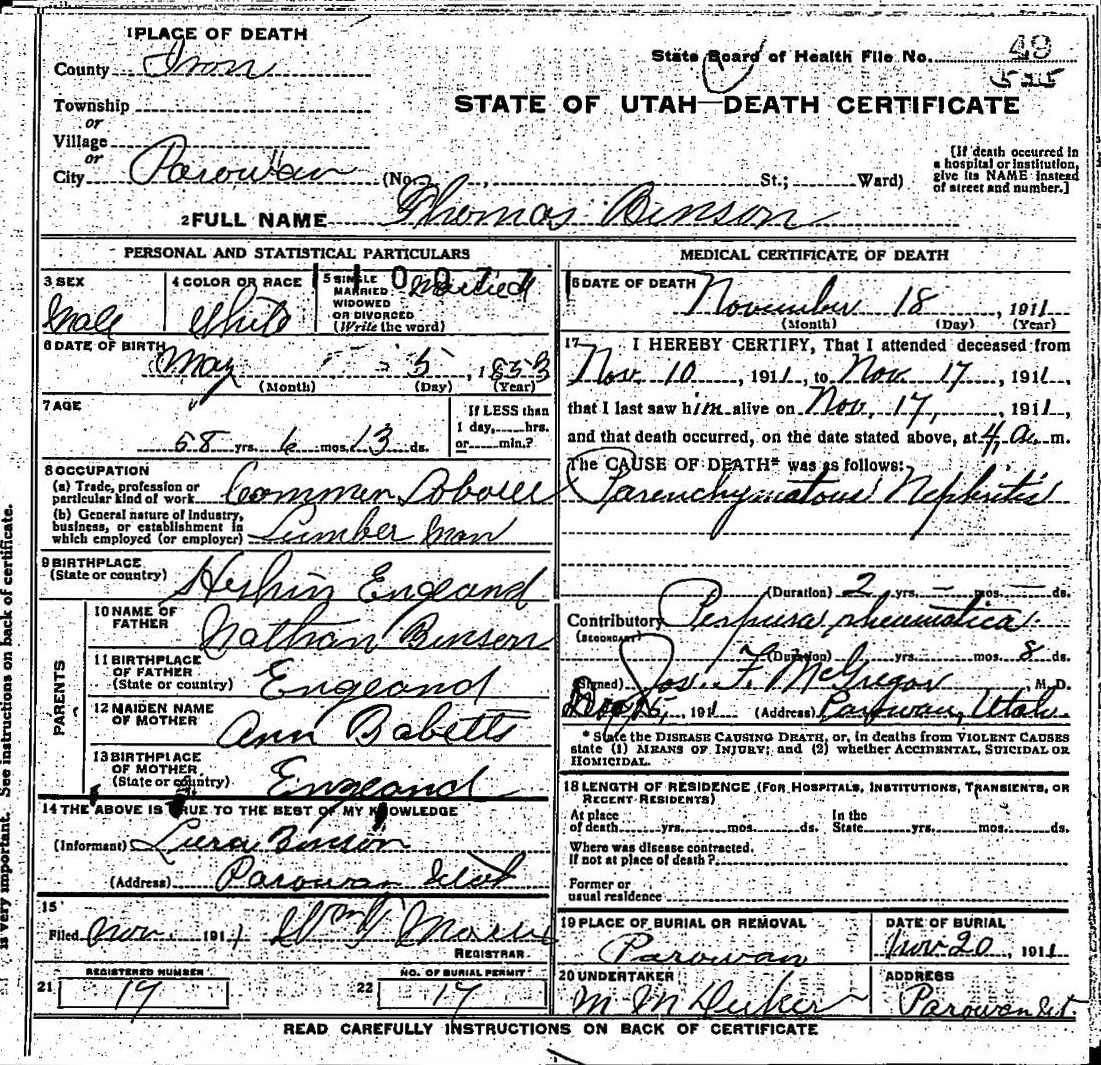 1 PLACE OF DEATH
County Iron
State Board of Health File No. 49
Township
or
Village
or
City Parowan (No. , St.; Ward)
STATE OF UTAH—DEATH CERTIFICATE
[If death occurred in
a hospital or institution,
give its NAME instead
of street and number.]
2 FULL NAME Thomas Binson
PERSONAL AND STATISTICAL PARTICULARS
3 SEX
Male
4 COLOR OR RACE
White
5 SINGLE
MARRIED
WIDOWED
OR DIVORCED
(Write the word)
Married
6 DATE OF BIRTH
May 5, 1853
(Month) (Day) (Year)
7 AGE
58 yrs. 6 mos. 13 ds.
If LESS than
1 day, hrs.
or min.?
8 OCCUPATION
(a) Trade, profession or
particular kind of work Common
(b) General nature of industry,
business, or establishment in
which employed (or employer) Lumber Man
9 BIRTHPLACE
(State or country) England
PARENTS
10 NAME OF
FATHER Nathan Binson
11 BIRTHPLACE
OF FATHER
(State or country) England
12 MAIDEN NAME
OF MOTHER Ann Babetts
13 BIRTHPLACE
OF MOTHER
(State or country) England
14 THE ABOVE IS TRUE TO THE BEST OF MY KNOWLEDGE
(Informant) Binson
(Address) Parowan Utah
15
Filed Nov. 1911 Wm
REGISTRAR.
REGISTERED NUMBER
21 17
NO. OF BURIAL PERMIT
22 17
MEDICAL CERTIFICATE OF DEATH
16 DATE OF DEATH
November 18, 1911
(Month) (Day) (Year)
17 I HEREBY CERTIFY, That I attended deceased from
Nov. 10, 1911, to Nov. 17, 1911,
that I last saw him alive on Nov, 17, 1911,
and that death occurred, on the date stated above, at 4, a. m.
The CAUSE OF DEATH* was as follows:
Parenchymatous Nephritis
(Duration) 2 yrs. — mos. — ds.
Contributory Perpura rheumatica
(SECONDARY)
(Duration) yrs. mos. 8 ds.
(Signed) Jos. F. McGregor, M. D.
1911 (Address) Parowan, Utah.
* State the DISEASE CAUSING DEATH, or, in deaths from VIOLENT CAUSES
state (1) MEANS OF INJURY; and (2) whether ACCIDENTAL, SUICIDAL OR
HOMICIDAL.
18 LENGTH OF RESIDENCE (FOR HOSPITALS, INSTITUTIONS, TRANSIENTS, OR
RECENT RESIDENTS)
At place
of death yrs. mos. ds.
In the
State yrs. mos. ds.
Where was disease contracted.
If not at place of death?
Former or
usual residence
19 PLACE OF BURIAL OR REMOVAL
Parowan
DATE OF BURIAL
Nov 20, 1911
20 UNDERTAKER
M M
ADDRESS
Parowan Ut.
READ CAREFULLY INSTRUCTIONS ON BACK OF CERTIFICATE
is very important. See instructions on back of certificate.